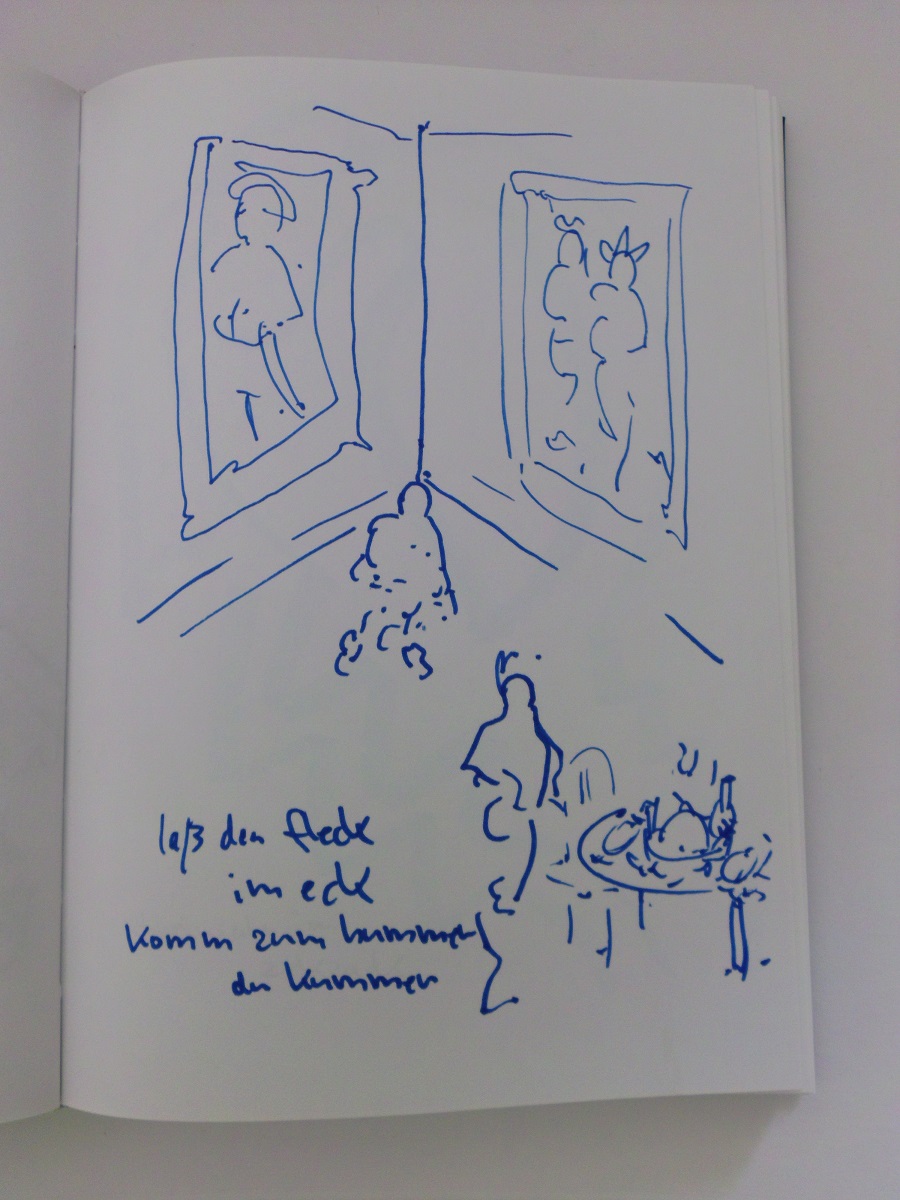 laß den fleck
im eck
komm zum hummer
du kummer